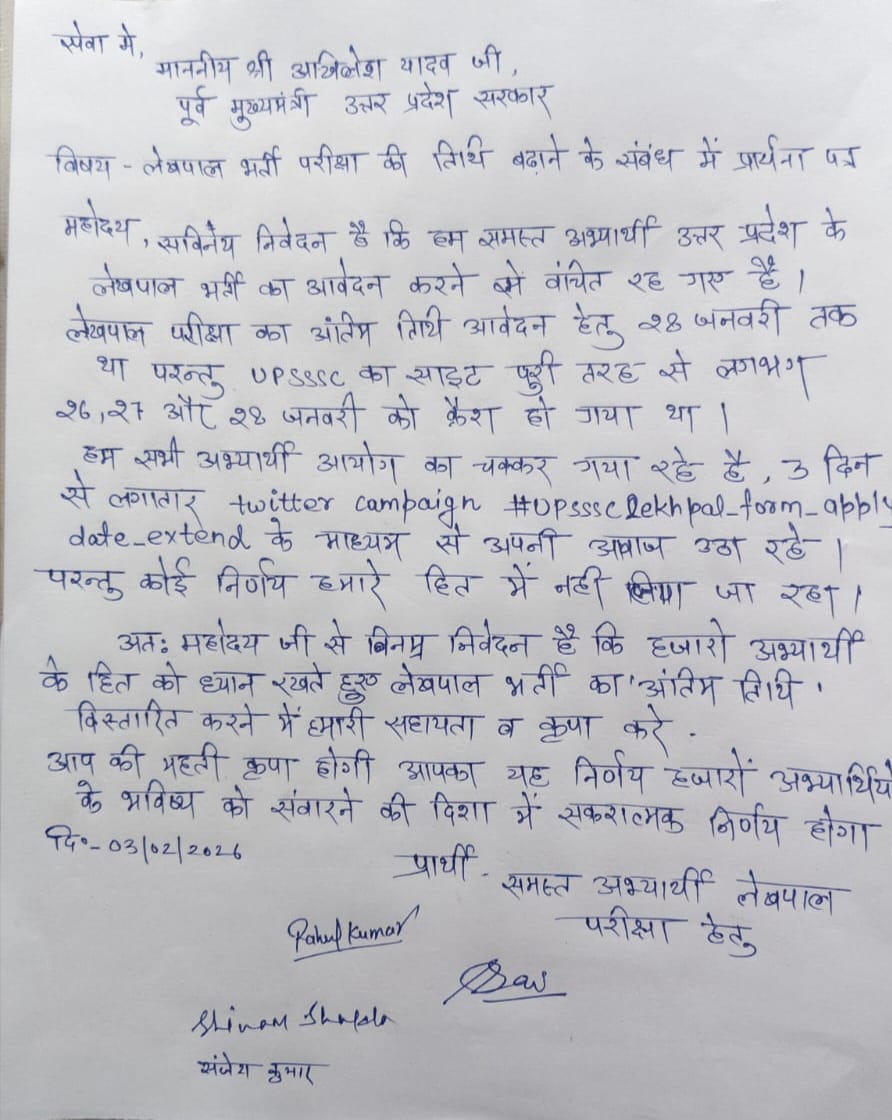 सेवा मे,
माननीय श्री अखिलेश यादव जी,
पूर्व मुख्यमंत्री उत्तर प्रदेश सरकार
विषय - लेखपाल भर्ती परीक्षा की तिथि बढ़ाने के संबंध में प्रार्थना पत्र
महोदय, सविनय निवेदन है कि हम समस्त अभ्यार्थी उत्तर प्रदेश के
लेखपाल भर्ती का आवेदन करने से वंचित रह गए है।
लेखपाल परीक्षा का अंतिम तिथि आवेदन हेतु २८ जनवरी तक
था परन्तु UPSSSC का साइट पुरी तरह से लगभग
२६,२७ और २८ जनवरी को क्रैश हो गया था।
हम सभी अभ्यार्थी आयोग का चक्कर गया रहे है, 3 दिन
से लगातार twitter campaign #UPSSSClekhpal_form_apply
date_extend के माध्यम से अपनी आवाज उठा रहे।
परन्तु कोई निर्णय हमारे हित में नही लिया जा रहा।
अतः महोदय जी से विनम्र निवेदन है कि हजारो अभ्यार्थी
के हित को ध्यान रखते हुए लेखपाल भर्ती का 'अंतिम तिथि'
विस्तारित करने में हमारी सहायता व कृपा करे.
आप की महती कृपा होगी आपका यह निर्णय हजारों अभ्यार्थियो
के भविष्य को संवारने की दिशा में सकरात्मक निर्णय होगा
दि०-03/02/2026
प्रार्थी.
समस्त अभ्यार्थी लेखपाल
परीक्षा हेतु
Rahul Kumar
Shivam
संजय कुमार